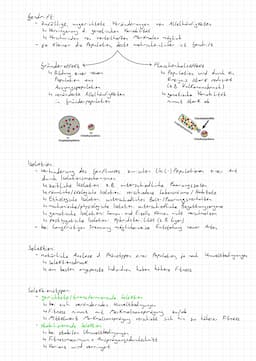 Gendrift:
- zufällige, ungerichtete Veränderungen von Allelhäufigkeiten
↳ Verringerung d. genetischen Variabilität
↳ Verschwinden von vorteilhaften Merkmalen möglich
- je kleiner die Population desto wahrscheinlicher ist Gendrift
Gründereffekt
↳ Bildung einer neuen Population aus Ausgangspopulation
↳ veränderte Allelhäufigkeiten in Gründerpopulation
Flaschenhalseffekt
↳ Population wird durch ein Ereignis stark reduziert
↳ genetische Variabilität nimmt stark ab
Isolation
- Verhinderung des Genflusses zwischen (Teil-)Populationen einer Art durch Isolationsmechanismen
↳ zeitliche Isolation z.B. unterschiedliche Paarungszeiten
↳ räumliche/ökologische Isolation: verschiedene Lebensräume / Habitate
↳ Ethologische Isolation: unterschiedliches Balz-/Paarungsverhalten
↳ mechanische/physiologische Isolation: unterschiedliche Begattungsorgane
↳ gametische Isolation: Samen- und Eizelle können nicht verschmelzen
↳ postzygotische Isolation: Hybride
- bei langer Trennung möglicherweise Entstehung neuer Arten
Selektion
- natürliche Auslese d. Phänotypen einer Population je nach Umweltbedingungen
↳ Selektionsdruck
↳ am besten angepasste Individuen haben höhere Fitness
Selektionstypen:
- gerichtete/transformierende Selektion
↳ bei sich verändernden Umweltbedingungen
↳ Fitness nimmt mit Merkmalsausprägung zu/ab
↳ Mittelwert Merkmalsausprägung verschiebt sich hin zu höherer Fitness
- stabilisierende Selektion
↳ bei stabilen Umweltbedingungen
↳ Fitnessmaximum = Ausprägungsdurchschnitt
↳ Varianz wird verringert